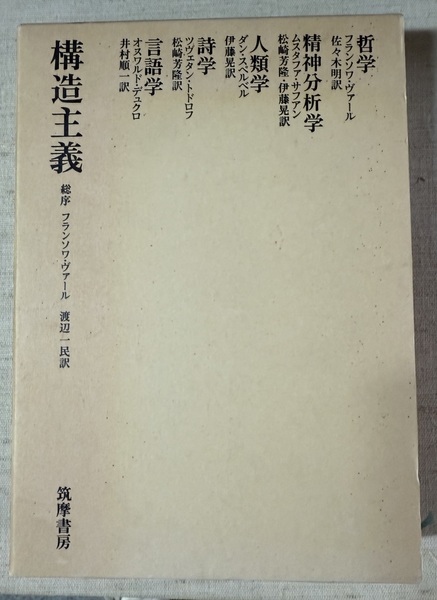 哲学
フランソワ・ヴァール
佐々木明訳
精神分析学
ムスタファ・サファン
松崎芳隆・伊藤晃訳
人類学
ダン・スペルベル
伊藤晃訳
詩学
ツヴェタン・トドロフ
松崎芳隆訳
言語学
オスワルド・デュクロ
井村順一訳
構造主義
総序 フランソワ・ヴァール 渡辺一民訳
筑摩書房